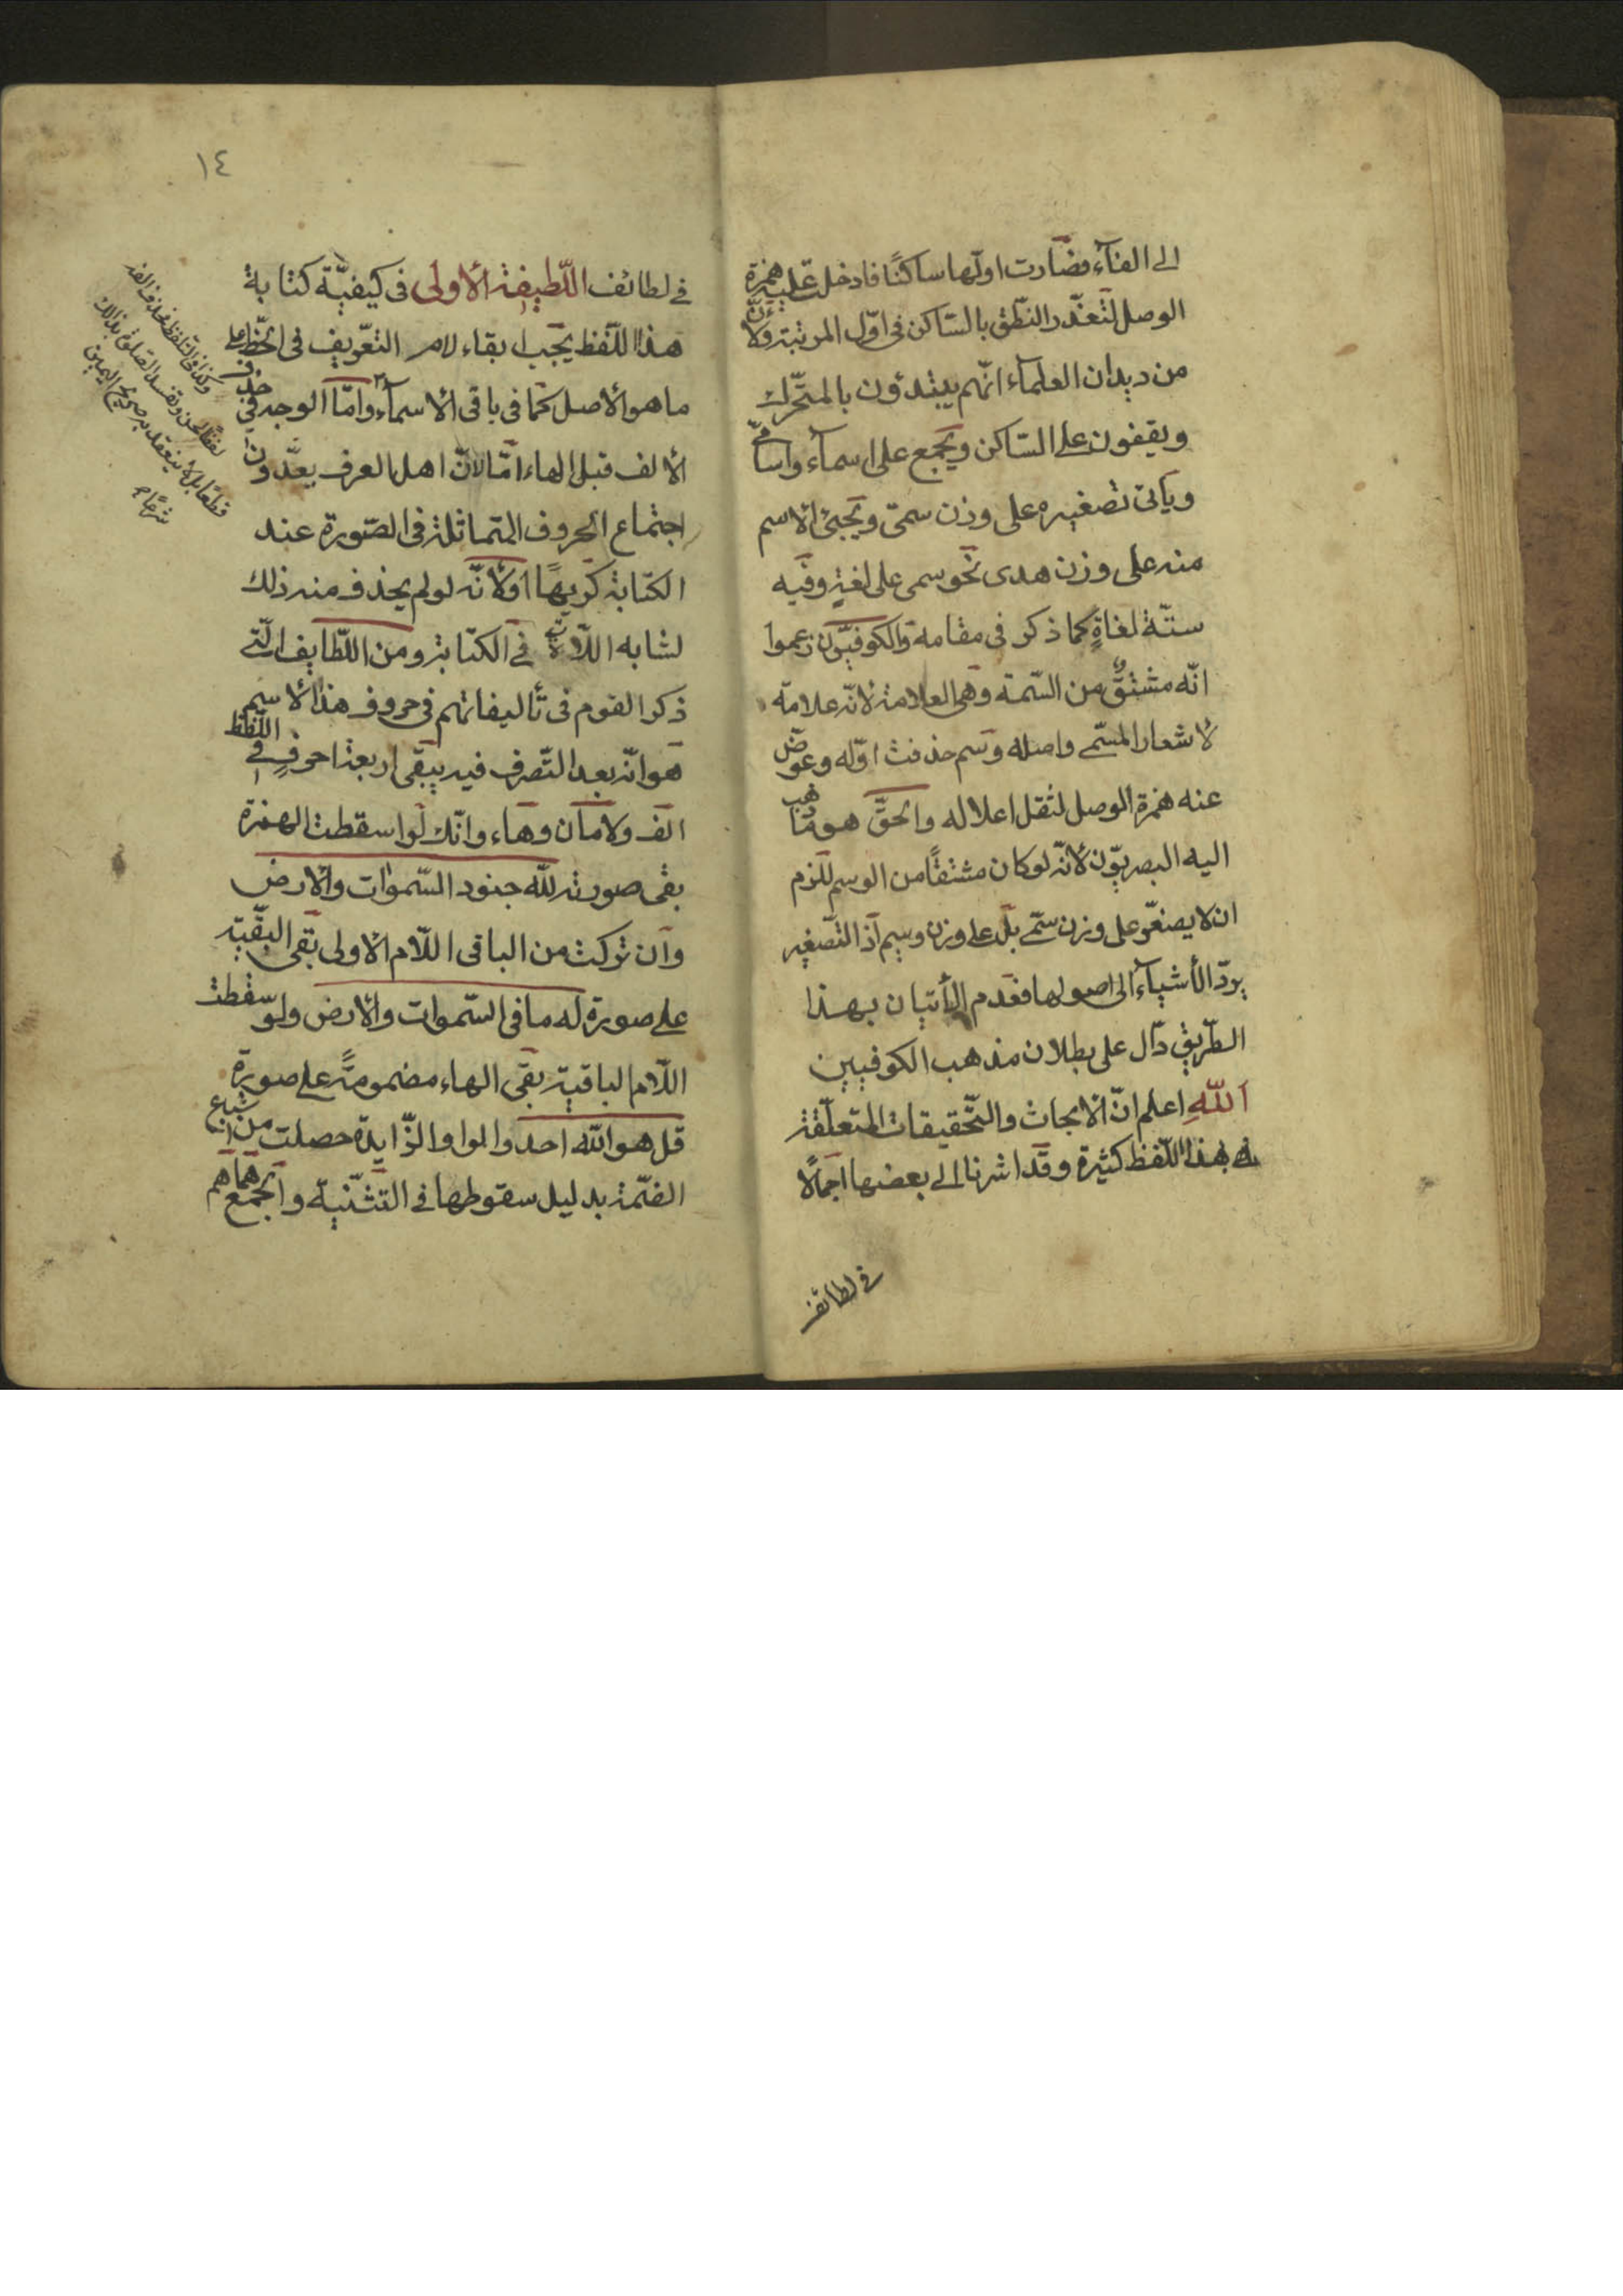 الى الفآء فصارت اولها ساكنًا فادخلت عليه همزة
الوصل لتعذّر النطق بالسّاكن فى اوّل المرتبة ولانّ
من ديدان العلمآء انّهم يبتدؤن بالمتحرّك
ويقفون على السّاكن ويجمع على اسمآء واسامى
ويأتى تصغيره على وزن سمىّ ويجئ الاسم
منه على وزن هدى نحو سمى على لغةٍ وفيه
ستّة لغاةٍ كما ذكر فى مقامه والكوفيّون زعموا
انّه مشتقٌّ من السّمة وهى العلامة لانّه علامة
لاشعار المسمّى واصله وسم حذفت اوّله وعوّض
عنه همزة الوصل لثقل اعلاله والحقّ هو ما ذهب
اليه البصريّون لانّه لو كان مشتقًّا من الوسم للزم
ان لا يصغّر على وزن سمّى بل على وزن وسيم اذ التّصغير
يردّ الأشيآء الى اصولها فعدم اليأتيان بهذا
الطّريق دّال على بطلان مذهب الكوفيين
اللّهِ اعلم انّ الابحاث والتّحقيقات المتعلّقة
بهذا اللّفظ كثيرة وقد اشرنا الى بعضها اجمالًا
فى لطائف
١٤
فى لطائف اللّطيفة الأولى فى كيفيّة كتابة
هذا اللّفظ يجب ابقاء لام التعّريف فى الخطّ على
ما هو الأصل كما فى باقى الاسمآء وامّا الوجه فى حذف
الألف قبل الهاء امّا لانّ اهل العرف يعدّون
اجتماع الحروف المتماثلة فى الصّورة عند
الكتابة كريهًا اولأنّه لو لم يحذف منه ذلك
لشابه اللّات فى الكتابة ومن اللّطايف الّتى
ذكر القوم فى تأليفاتهم فى حروف هذا الأسم
هو انّه بعد التّصرف فيه يبقى اربعة احرفٍ فى اللّفظ
الف ولامان وهاء وانّك لو اسقطت الهمزة
بقى صورته للّه جنود السّموات والأرض
وان تركت من الباقى اللّام الاولى بقى البقيّة
على صورة له ما فى السّموات والأرض ولو سقطت
اللّام الباقية بقى الهاء مضمومةً على صورة
قل هو اللّه احد والواو الزّايدة حصلت من اشباع
الضّمة بدليل سقوطها فى التثنية والجمع هما هم
وكذا فى التلفظ بحذف الفه
لفظًا لحن وتفسد الصّلوة بذلك
قطعًا بل لا ينعقد به صريح اليمين
شرحًا م